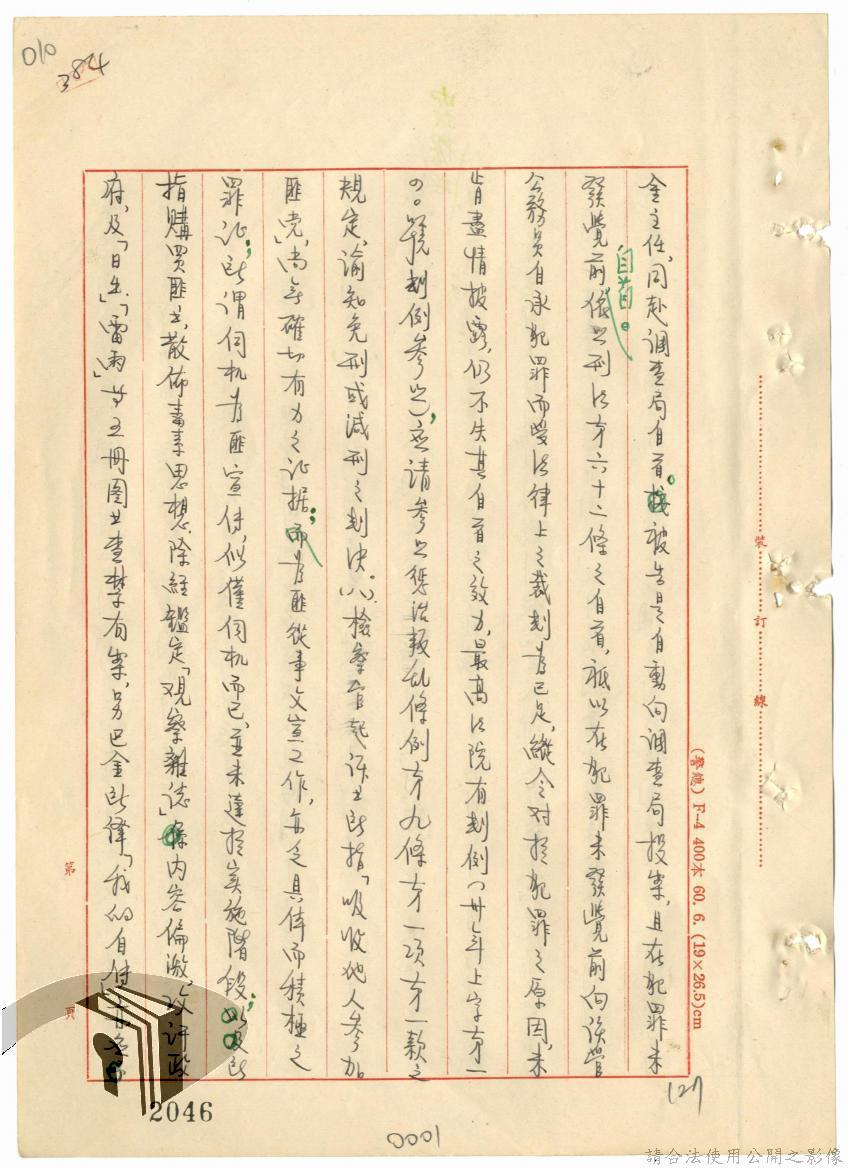 010
384
金主任,同赴調查局自首。被告是自動向調查局投案,且在犯罪未
發覺前自首。依照刑法第六十二條之自首,祗以在犯罪未發覺前向該管
公務員自承犯罪而受法律上之裁判為已足,縱令对於犯罪之原因,未
肯盡情披露,仍不失其自首之效力,最高法院有判例(廿年上字第一
〇。號判例參照),应請參照懲治叛乱條例第九條第一項第一款之
規定諭知免刑或減刑之判決。(八)檢察官起訴书所指「吸收他人參加
匪党」,尚無確切有力之証據;而為匪從事文宣工作,亦乏具体而積極之
罪証;所謂伺机為匪宣传,似僅伺机而已,並未達於实施階段;以及所
指購買匪书,散佈毒素思想,除經鑑定「观察雜誌」內容偏激,攻訐政
府,及「日出」、「雷雨」等五冊图书查禁有案,另巴金所译「我的自传」
(警總) F-4 400本 60. 6. (19×26.5)cm
裝訂線
第 頁
127
2046
0001
請合法使用公開之影像